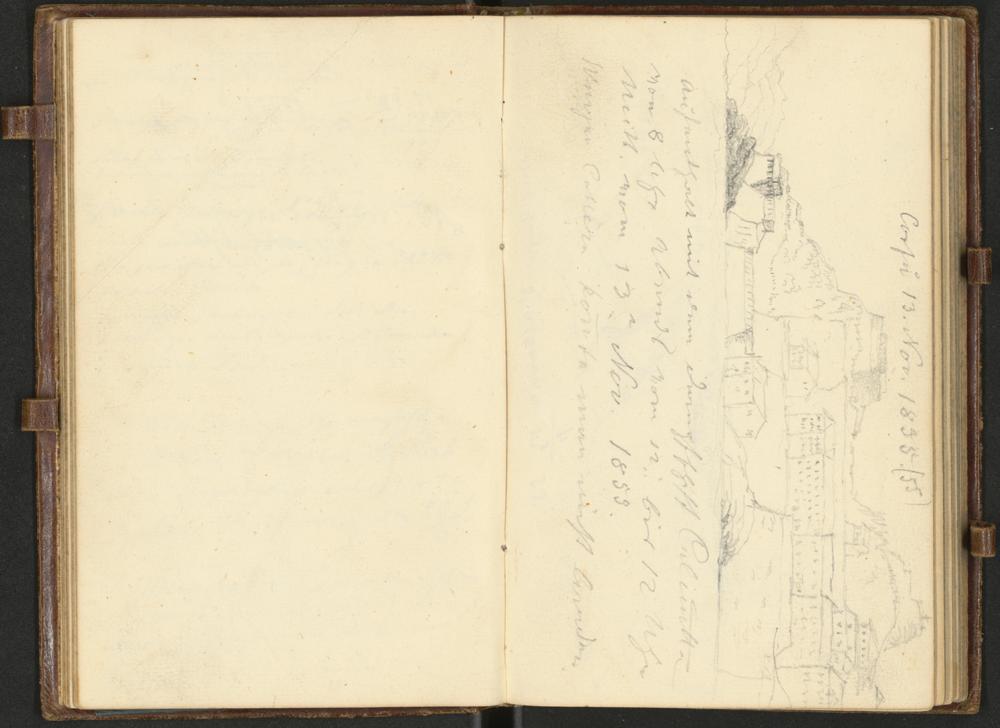 Corfu 13. Nov. 1855. (55)
Aufenthalt mit dem Dampfschiff Calcutta
von 8 Uhr Abends vom 12. bis 12 Uhr
Mitt. vom 13ⁿ Nov. 1855.
Wegen Cholera konnte man nicht landen.